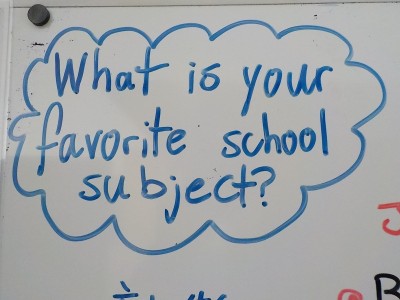 What is your
favorite school
subject?